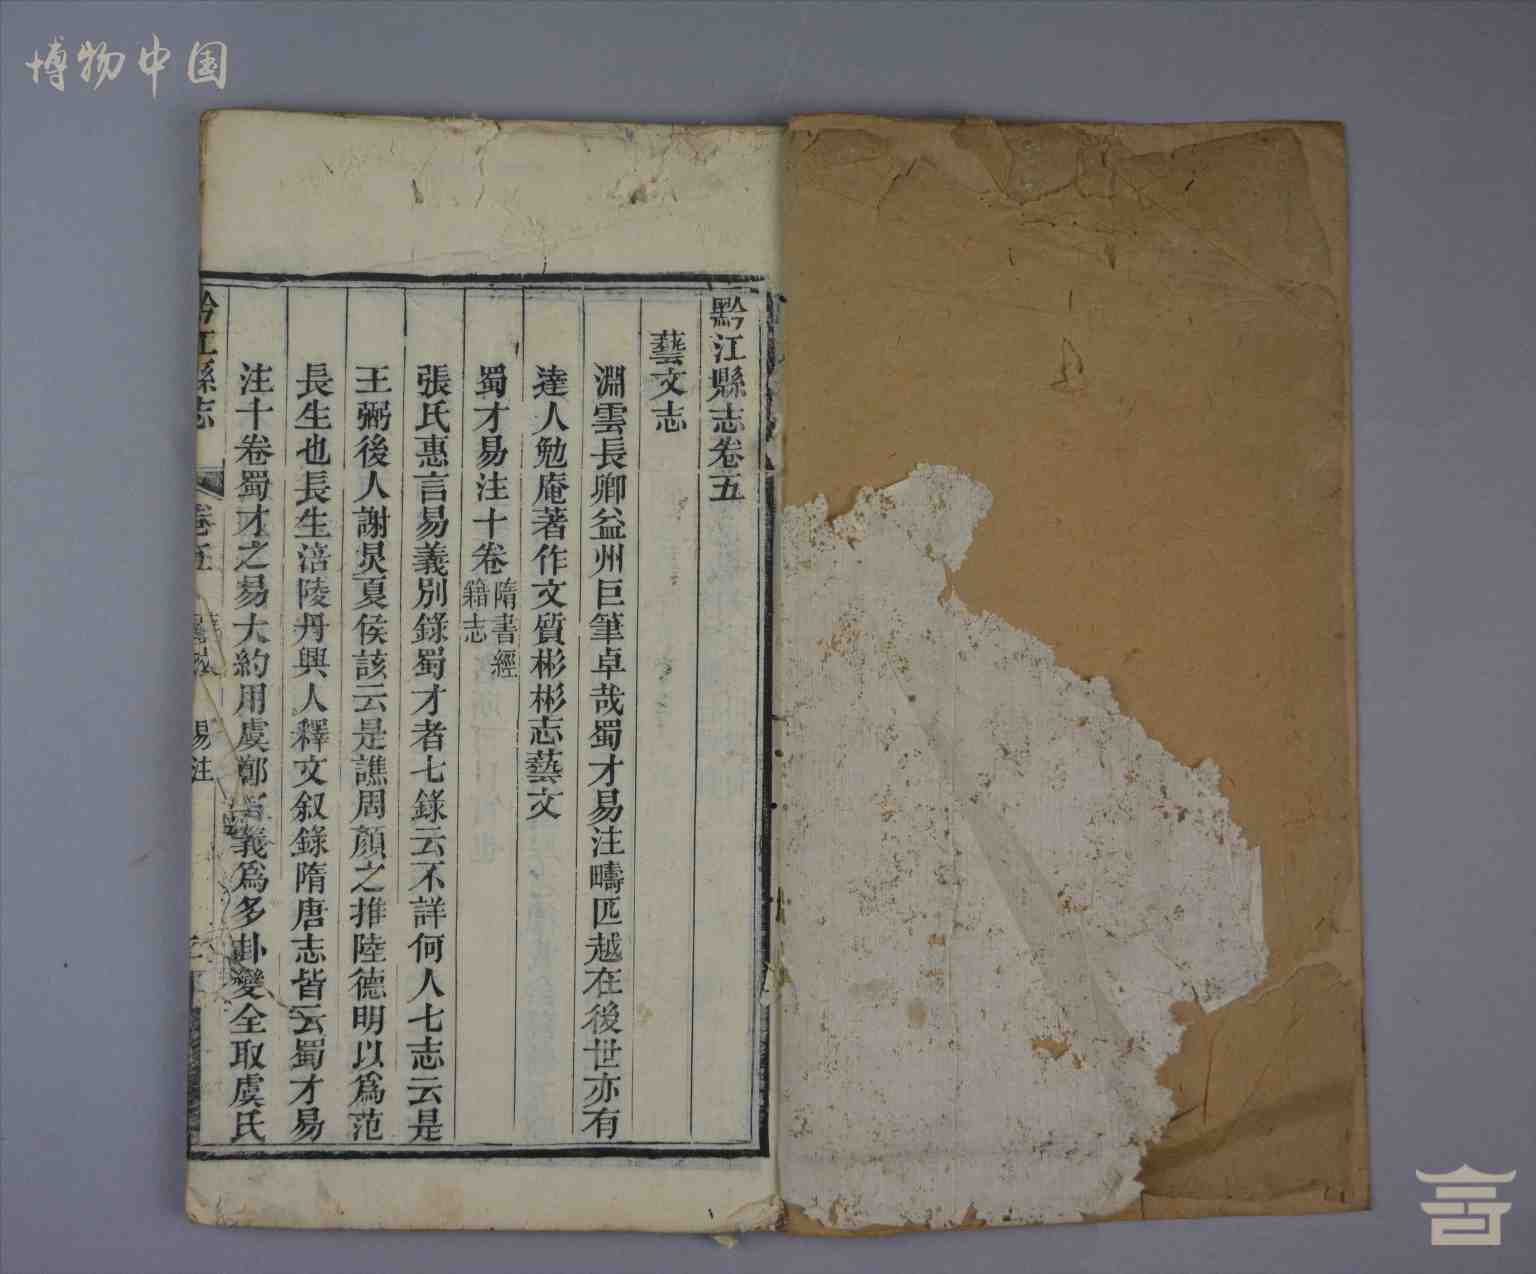 博物中国
黔江縣志卷五
藝文志
淵雲長卿益州巨筆卓哉蜀才易注疇匹越在後世亦有
達人勉庵著作文質彬彬志藝文
蜀才易注十卷隋書經籍志
張氏惠言易義別錄蜀才者七錄云不詳何人七志云是
王弼後人謝炅夏侯該云是譙周顏之推陸德明以爲范
長生也長生涪陵丹興人釋文叙錄隋唐志皆云蜀才易
注十卷蜀才之易大約用虞鄭之義爲多卦變全取虞氏
黔江縣志 卷五 易注